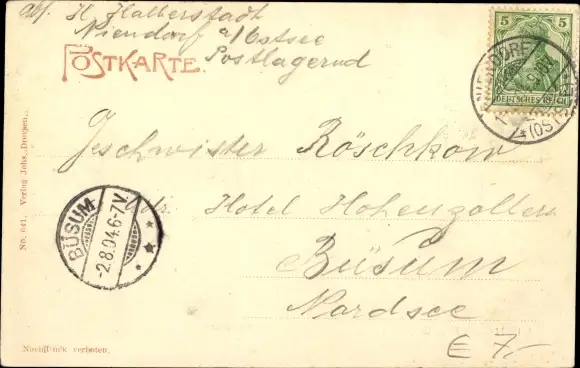 Abs. H. Halberstadt
Niendorf a/Ostsee
Postlagernd
POSTKARTE.
5 5
DEUTSCHES REICH
NIENDORF
*(OST
Geschwister Röschkow
Hotel Hohenzollern
Büsum
Nordsee
BÜSUM
-2.8.04.6-7V
* * *
No. 641. Verlag Johs. Dreesen,
Nachdruck verboten.
€ 7,-